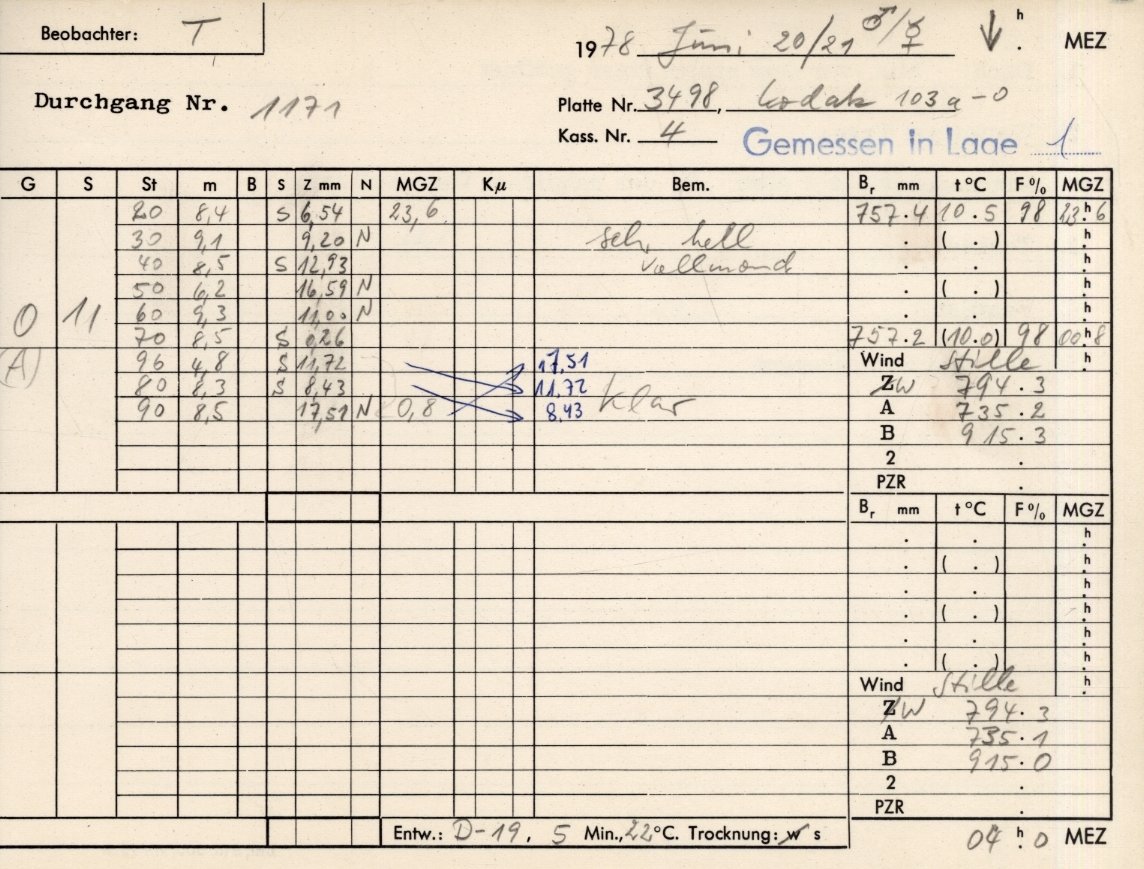 Beobachter: T
1978 Juni 20/21 ♂/♀ ↓ h . MEZ
Durchgang Nr. 1171
Platte Nr. 3498, kodak 103a-O
Kass. Nr. 4 Gemessen in Lage 1
G S St m B S Z mm N MGZ Kμ Bem. Br mm t°C F% MGZ
20 8,4 S 6,54 23,6 757.4 10.5 98 23.h6
30 9,1 9,20 N sehr hell . ( . ) h.
40 8,5 S 12,93 Vollmond . . h.
50 6,2 16,59 N . ( . ) h.
0 11 60 9,3 11,00 N . . h.
70 8,5 S 0,26 757.2 (10.0) 98 00.h8
(A) 96 4,8 S 11,72 17,51 Wind Stille h.
80 8,3 S 8,43 11,72 klar Z W 794.3
90 8,5 17,51 N 0,8 8,43 A 735.2
B 915.3
2 .
PZR .
Br mm t°C F% MGZ
. . h.
. ( . ) h.
. . h.
. ( . ) h.
. . h.
. ( . ) h.
Wind Stille h.
Z W 794.3
A 735.1
B 915.0
2 .
PZR .
Entw.: D-19, 5 Min., 22°C. Trocknung: w s
04 h. 0 MEZ